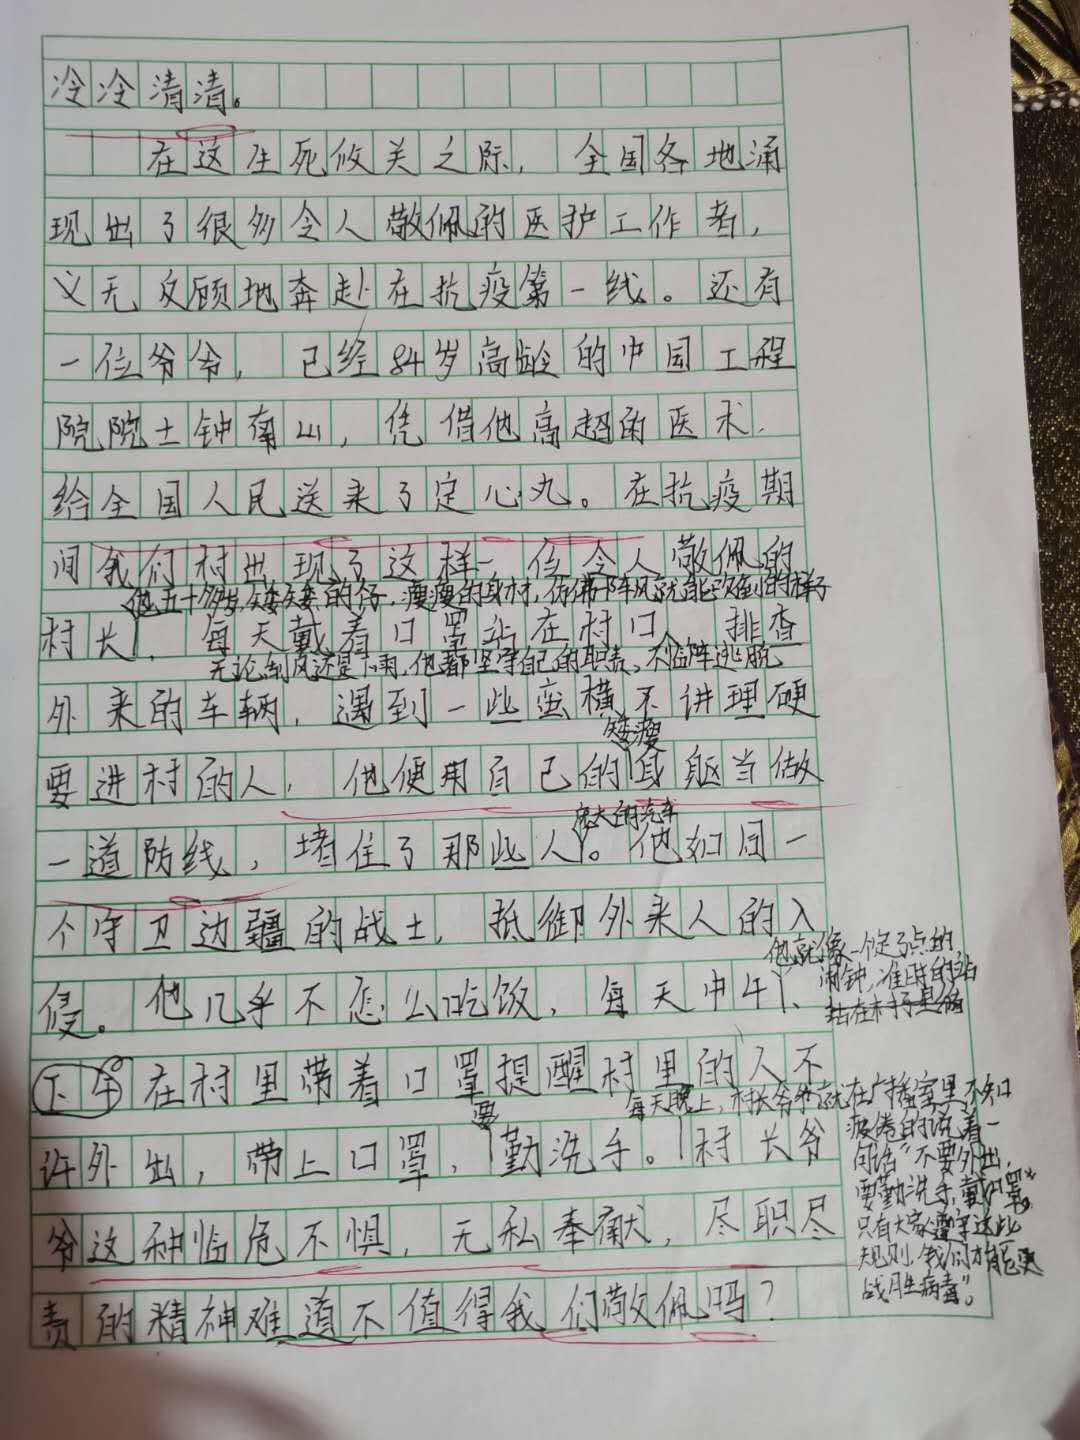 冷冷清清。
在这生死攸关之际，全国各地涌
现出了很多令人敬佩的医护工作者，
义无反顾地奔赴在抗疫第一线。还有
一位爷爷，已经84岁高龄的中国工程
院院士钟南山，凭借他高超的医术，
给全国人民送来了定心丸。在抗疫期
间我们村出现了这样一位令人敬佩的
他五十多岁，矮矮的个子，瘦瘦的身材，仿佛一阵风就能吹倒的样子
村长，每天戴着口罩站在村口，排查
无论刮风还是下雨，他都坚守自己的职责，不临阵逃脱
外来的车辆，遇到一些蛮横不讲理硬
矮瘦
要进村的人，他便用自己的身躯当做
庞大的汽车
一道防线，堵住了那些人。他如同一
个守卫边疆的战士，抵御外来人的入
他就像一个定了点的
闹钟，准时的站
站在村子里的
侵。他几乎不怎么吃饭，每天中午、
下午在村里带着口罩提醒村里的人不
要
每天晚上，村长爷爷就在广播室里不知
疲倦的说着一
句话“不要外出，
要勤洗手，戴口罩，
只有大家遵守这些
规则，我们才能更
战胜病毒”。
许外出，带上口罩，勤洗手。村长爷
爷这种临危不惧，无私奉献，尽职尽
责的精神难道不值得我们敬佩吗？